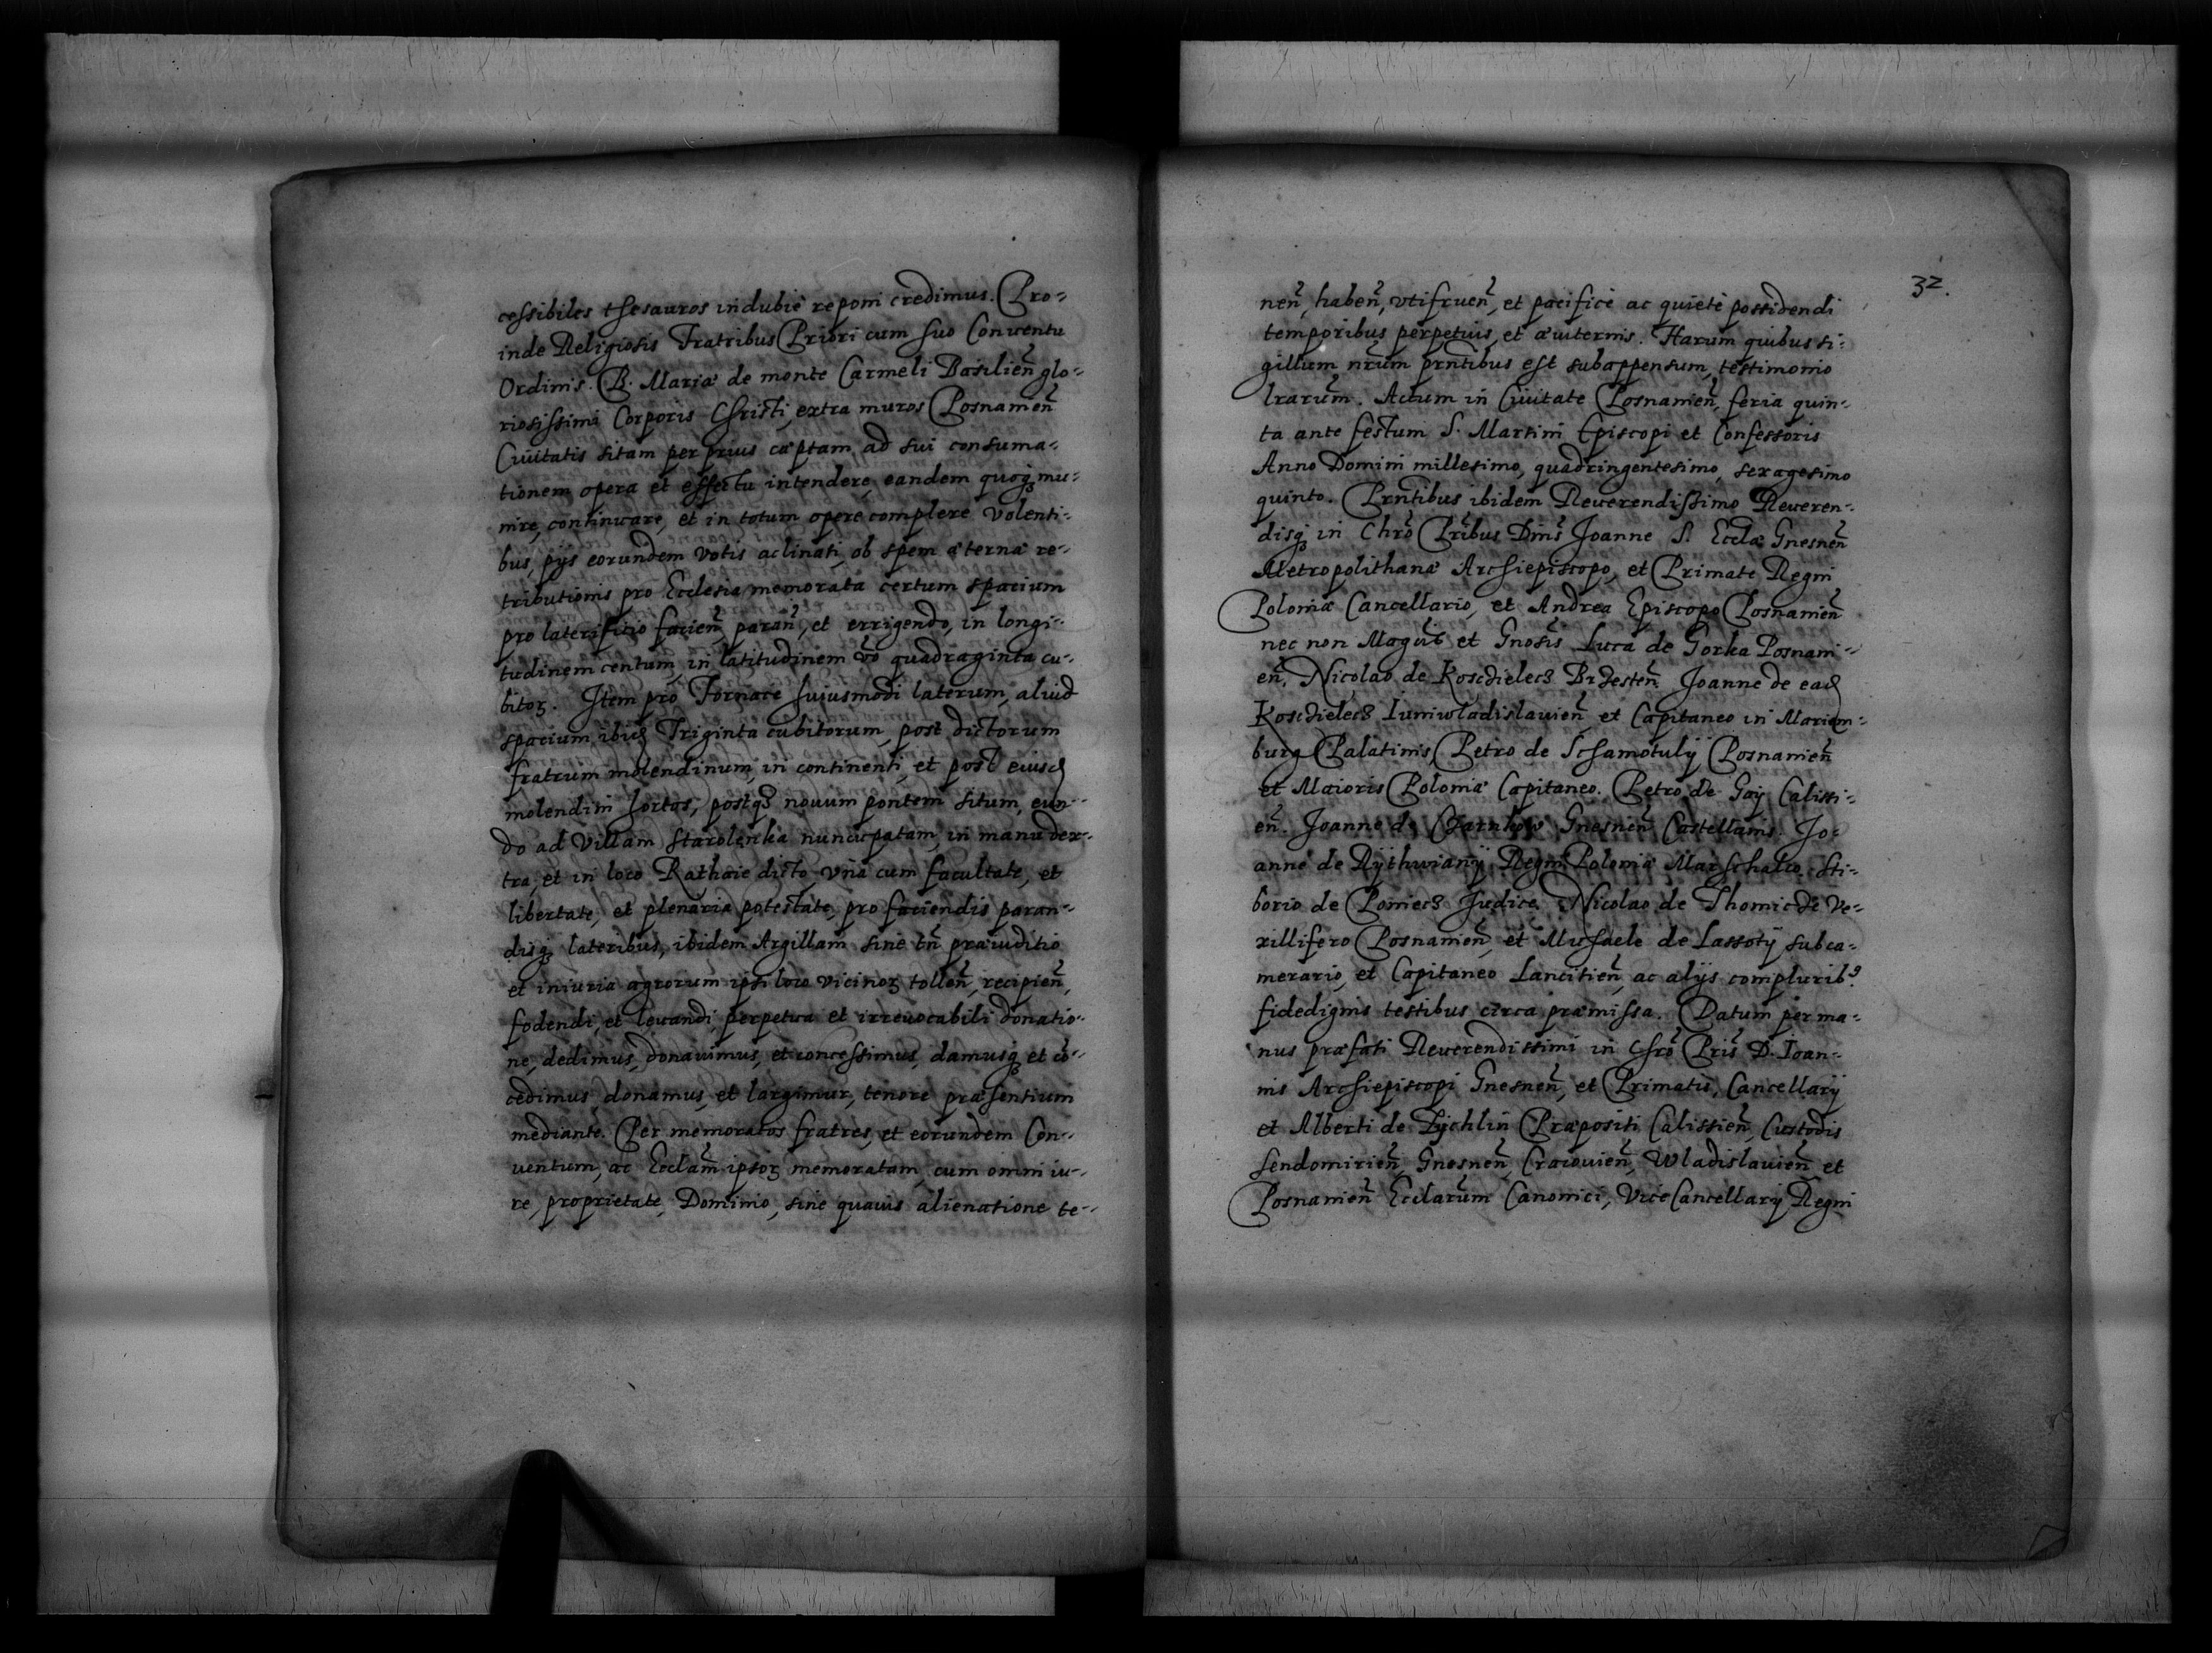 cessibiles thesauros indubiè reponi credimus. Pro-
inde Religiosis Fratribus Priori cum suo Conuentu
Ordinis. B. Mariæ de monte Carmeli Basilicæñ glo-
riosissimi Corporis Christi, extra muros Posnamieñ
Ciuitatis sitam per prius cæptam ad sui consuma-
tionem opera et effectu intendere, eandem quoq; mu-
nire, continuare, et in totum opere complere volenti-
bus, pijs eorundem votis aclinati, ob spem æternæ re-
tributionis pro Ecclesia memorata certum spacium
pro laterificio facieñ, parañ, et errigendo, in longi-
tudinem centum, in latitudinem vo quadraginta cu-
bitoꝝ. Item pro Fornace huiusmodi laterum, aliud
spacium ibid Triginta cubitorum, post dictorum
fratrum molendinum, in continenti, et post eiusd
molendini hortos, postq3 nouum pontem situm, eun-
do ad Villam Starolenka nuncupatam, in manu dex-
tra, et in loco Rathaie dicto, vna cum facultate, et
libertate, et plenaria potestate, pro faciendis paran-
disq; lateribus, ibidem Argillam sine tñ præiuditio
et iniuria agrorum ipsi loco vicinoꝝ tolleñ, recipieñ,
fodendi, et leuandi, perpetua et irreuocabili donatio-
ne, dedimus, donauimus, et concessimus, damusq; et co-
cedimus, donamus, et largimur, tenore præsentium
mediante. Per memoratos fratres, et eorundem Con-
uentum, ac Ecclam ipsoꝝ memoratam, cum omni iu-
re, proprietate, Dominio, sine quauis alienatione te-
32.
neñ, habeñ, vtifrueñ, et pacificè ac quietè possidendi
temporibus perpetuis, et æuiternis. Harum quibus si-
gillum nrum prntibus est subappensum, testimonio
lrarum. Actum in Ciuitate Posnamieñ, feria quin-
ta ante festum S. Martini Episcopi et Confessoris
Anno Domini millesimo, quadringentesimo, sexagesimo
quinto. Prntibus ibidem Reuerendissimo Reueren-
disq; in Chro Pribus Dnis Joanne S. Ecclæ Gnesneñ
Metropolithanæ Archiepiscopo, et Primate Regni
Poloniæ Cancellario, et Andrea Episcopo Posnamieñ
nec non Magcis et Gnosis Luca de Gorka Posnami-
eñ, Nicolao de Koscdielecz Brzesteñ. Joanne de ead
Koscdielecz Iuniwladislauieñ et Capitaneo in Mariem-
burg Palatinis, Petro de Schamotulij Posnamieñ
et Maioris Poloniæ Capitaneo. Petro de Gaij Calissi-
eñ. Joanne de Charnkow Gnesneñ Castellanis. Jo-
anne de Rijthwianij Regni Poloniæ Marschalco. Sti-
borio de Poniecz Judice, Nicolao de Thomicde Ve-
xillifero Posnamieñ, et Michaele de Lassotij subca-
merario, et Capitaneo Lancitieñ, ac alijs complurib9
fidedignis testibus circa præmissa. Datum per ma-
nus præfati Reuerendissimi in Chro Pris D. Ioan-
nis Archiepiscopi Gnesneñ, et Primatis, Cancellarij
et Alberti de Zijchlin Præpositi Calissieñ, Custodis
Sendomirieñ, Gnesneñ, Cracouieñ, Wladislauieñ et
Posnamieñ Ecclarum Canonici, ViceCancellarij Regni